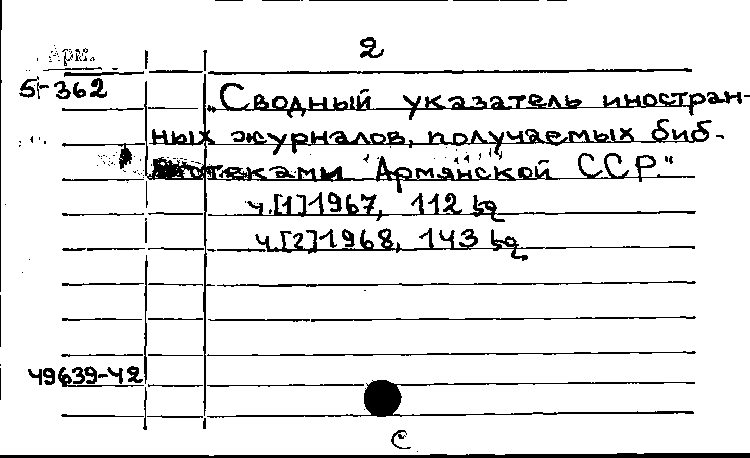 2
Арм.
5-362
„Сводный указатель иностран-
ных журналов, получаемых биб-
лиотеками Армянской ССР."
ч.[1] 1967, 112 եջ
ч.[2] 1968, 143 եջ
49639-42
С